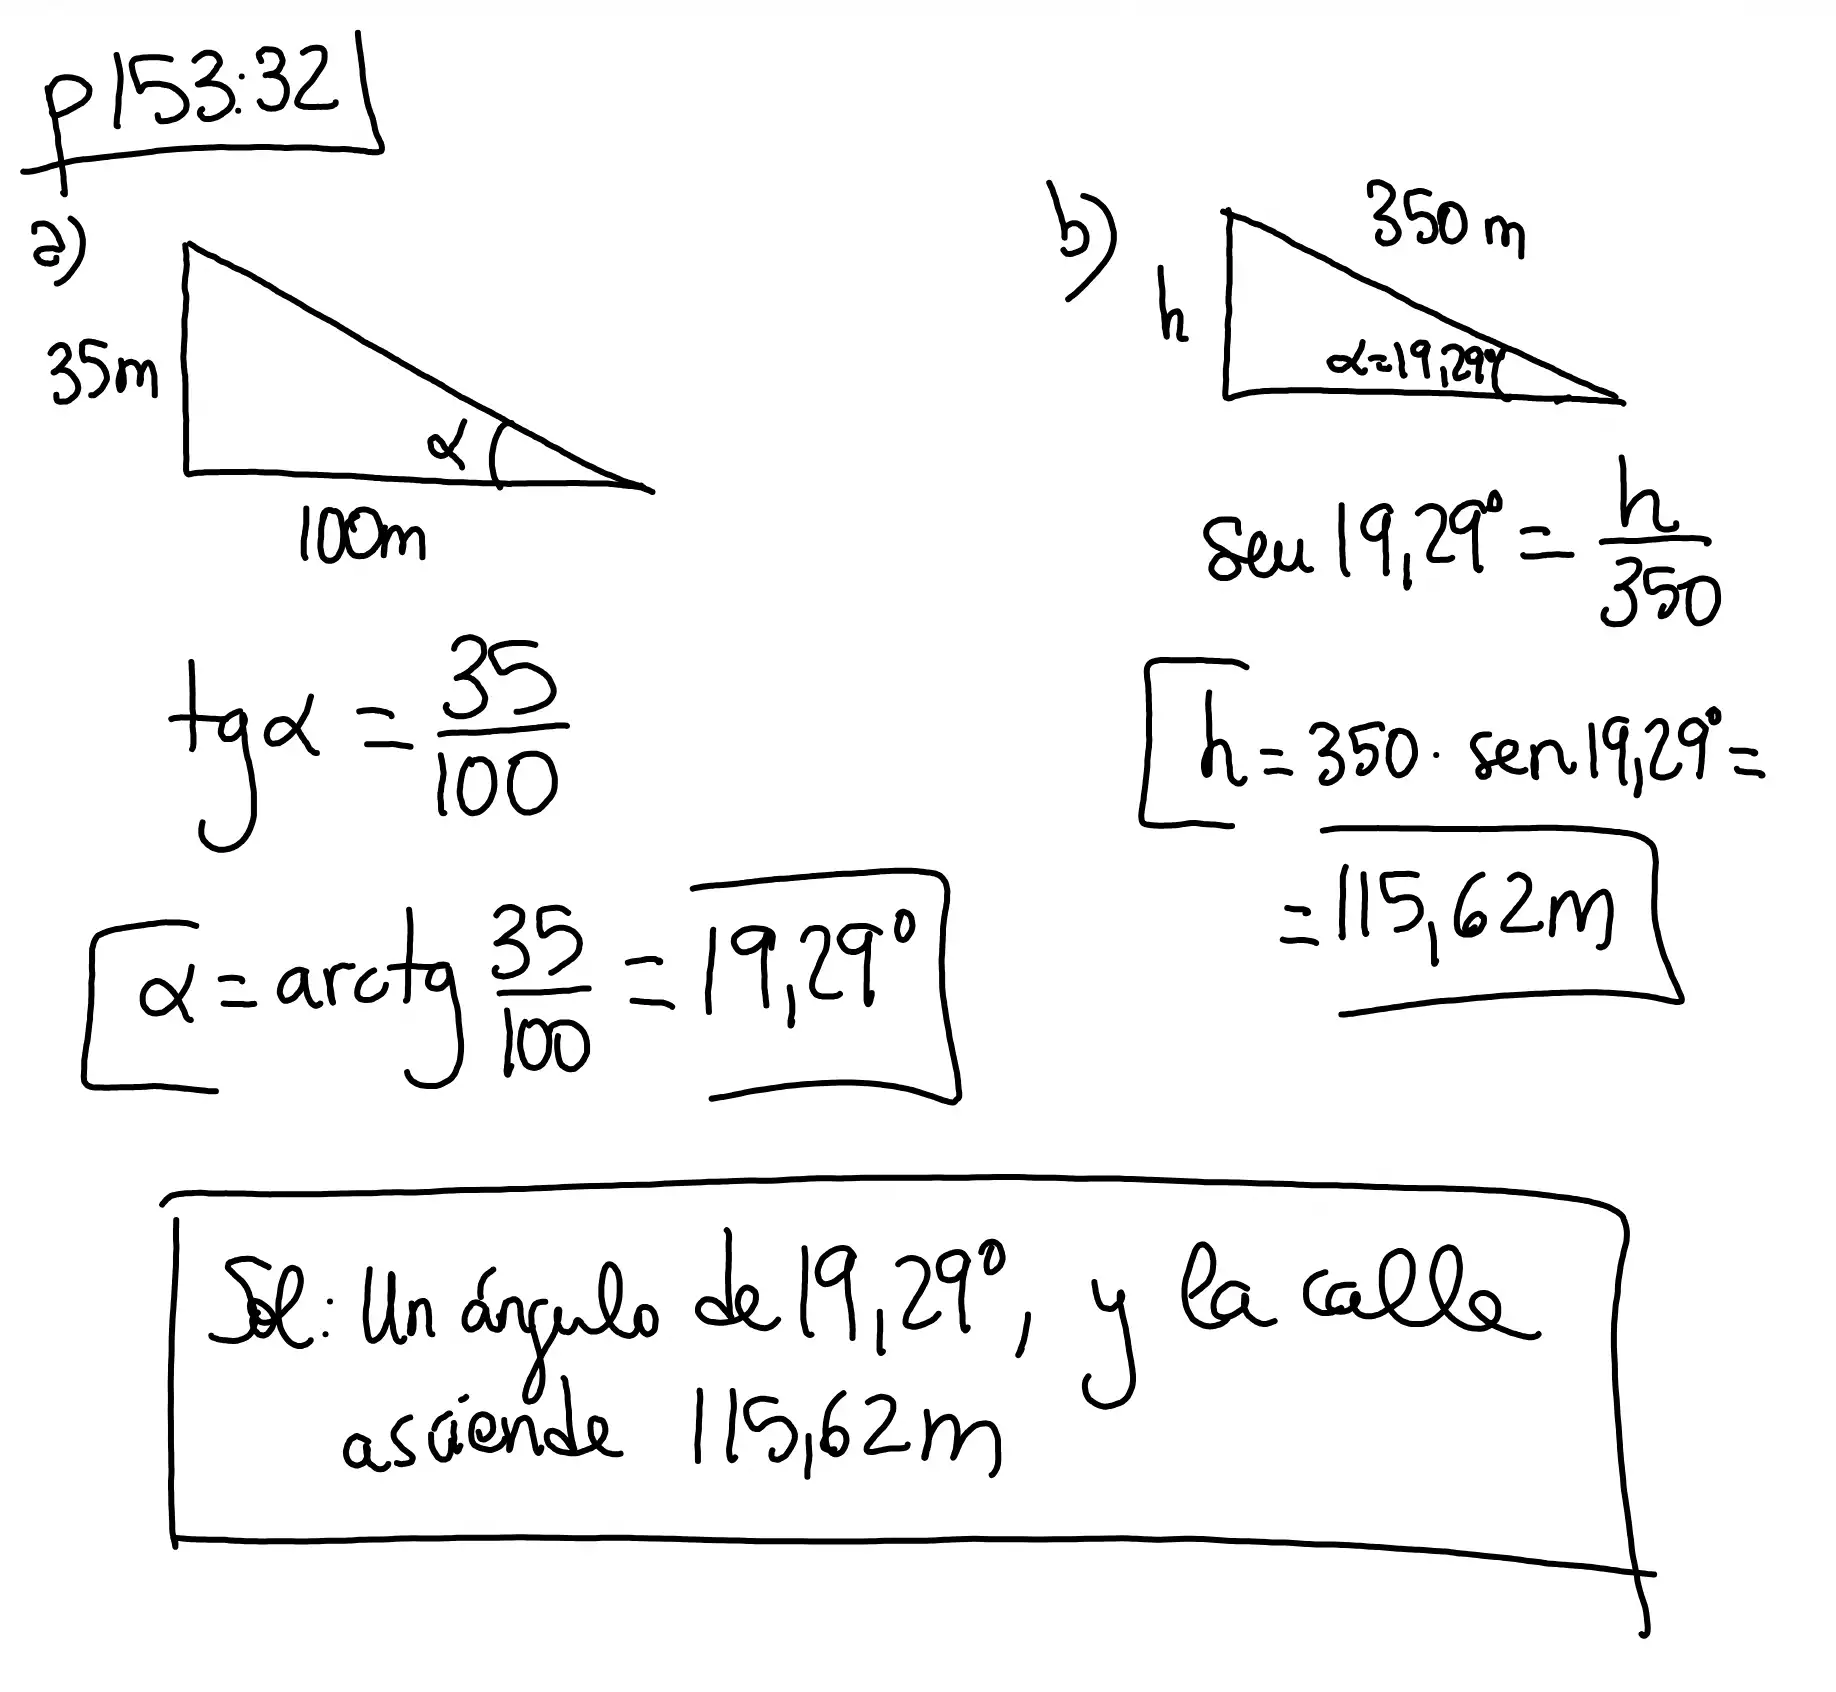 p153:32
a)
35m
α
100m
tgα = 35/100
α = arctg 35/100 = 19,29º
b)
350 m
h
α=19,29º
sen 19,29º = h/350
h = 350 · sen 19,29º =
= 115,62m
Sol: Un ángulo de 19,29º, y la calle
asciende 115,62m